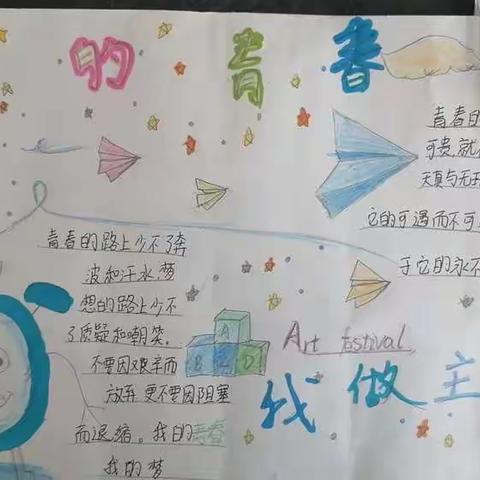 的青春
青春的
可贵就
天真与无
它的可遇而不可
于它的永不
青春的路上少不了奔
波和汗水,梦
想的路上少不
了质疑和嘲笑.
不要因艰辛而
放弃 更不要因阻塞
而退缩。我的青春
我的梦
A
B C D
Art festival
我做主